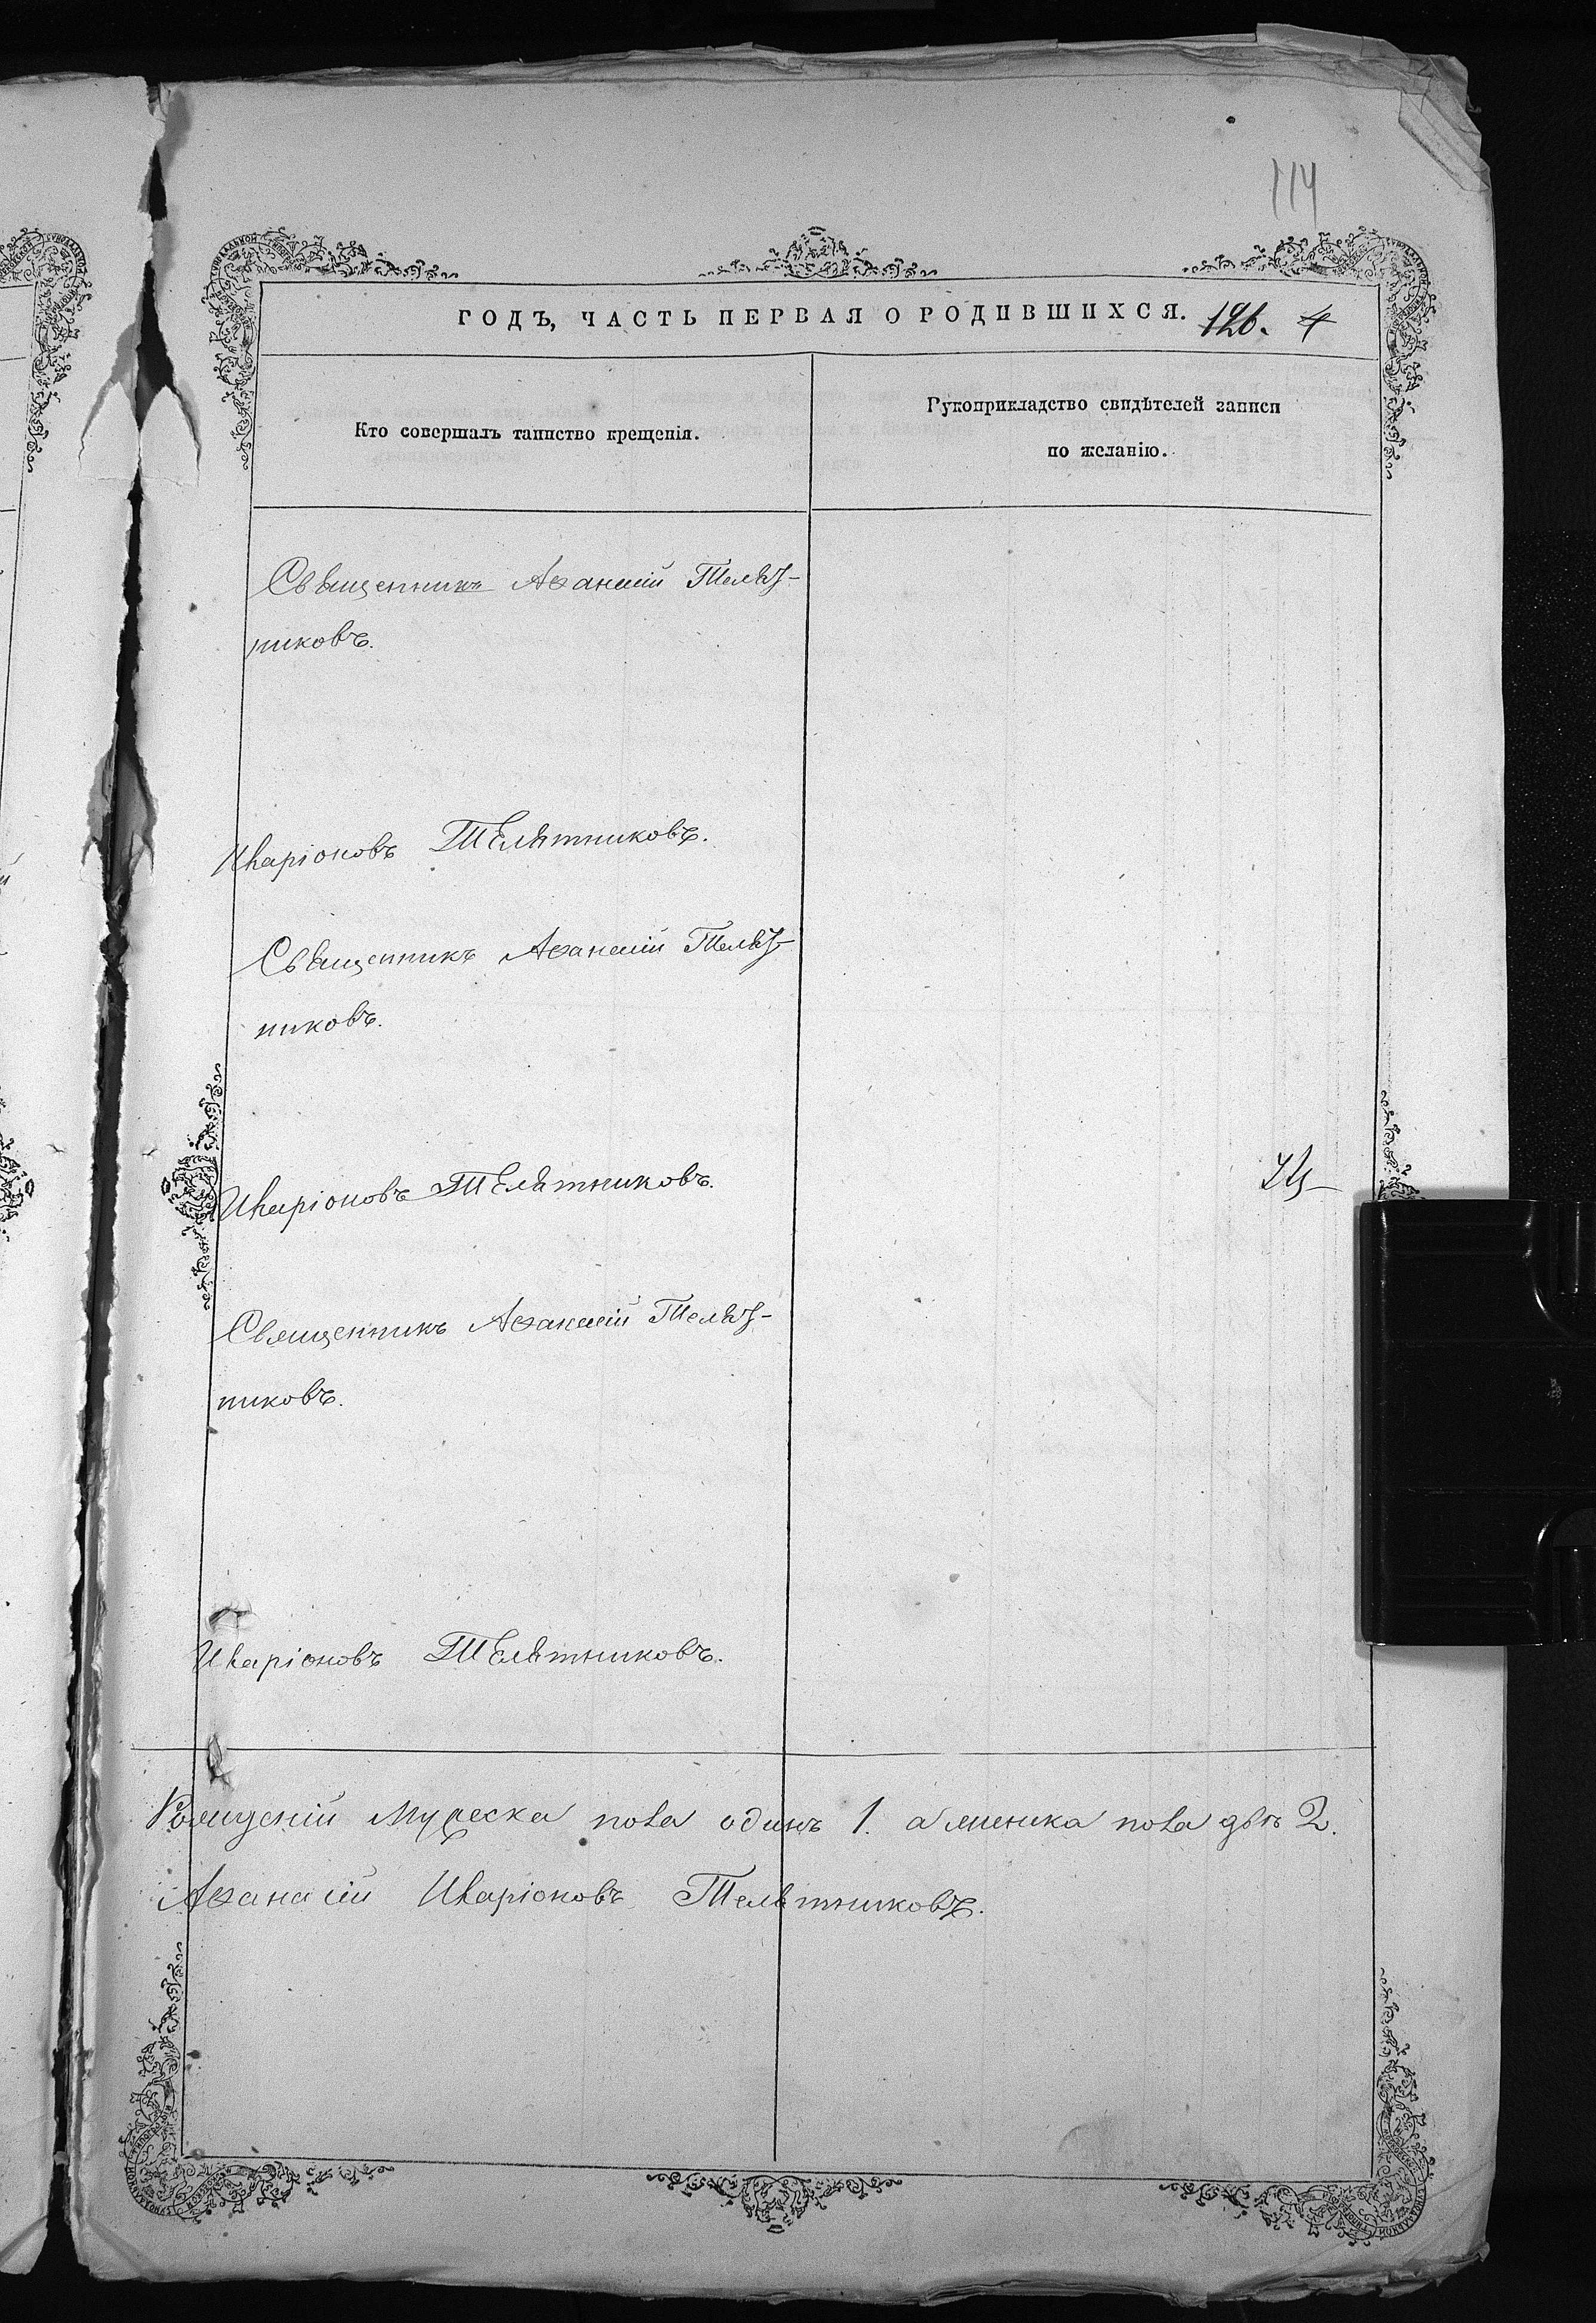 114
ГОДЪ, ЧАСТЬ ПЕРВАЯ О РОДИВШИХСЯ. 126. 4
Кто совершалъ таинство крещенія.
Рукоприкладство свидѣтелей записи
по желанію.
Священникъ Аѳанасій Телѣт-
никовъ.
Иларіоновъ Телѣтниковъ.
Священникъ Аѳанасій Телѣт-
никовъ.
Иларіоновъ Телѣтниковъ.
Священникъ Аѳанасій Телѣт-
никовъ.
Иларіоновъ Телѣтниковъ.
мужеска пола одинъ 1. а женска пола двѣ 2.
Аѳанасій Иларіоновъ Телѣтниковъ.